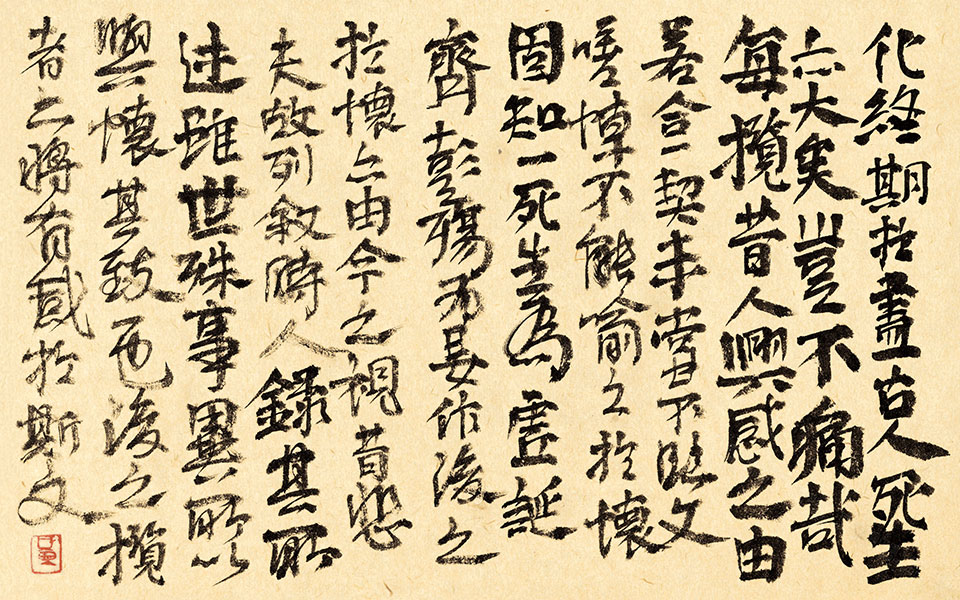 化終期於盡古人死生
亦大矣豈不痛哉
每攬昔人興感之由
若合一契未嘗不臨文
嗟悼不能喻之於懷
固知一死生為虛誕
齊彭殤為妄作後之
於懷亦由今之視昔悲
夫故列敘時人錄其所
述雖世殊事異所以
興懷其致一也後之攬
者亦將有感於斯文